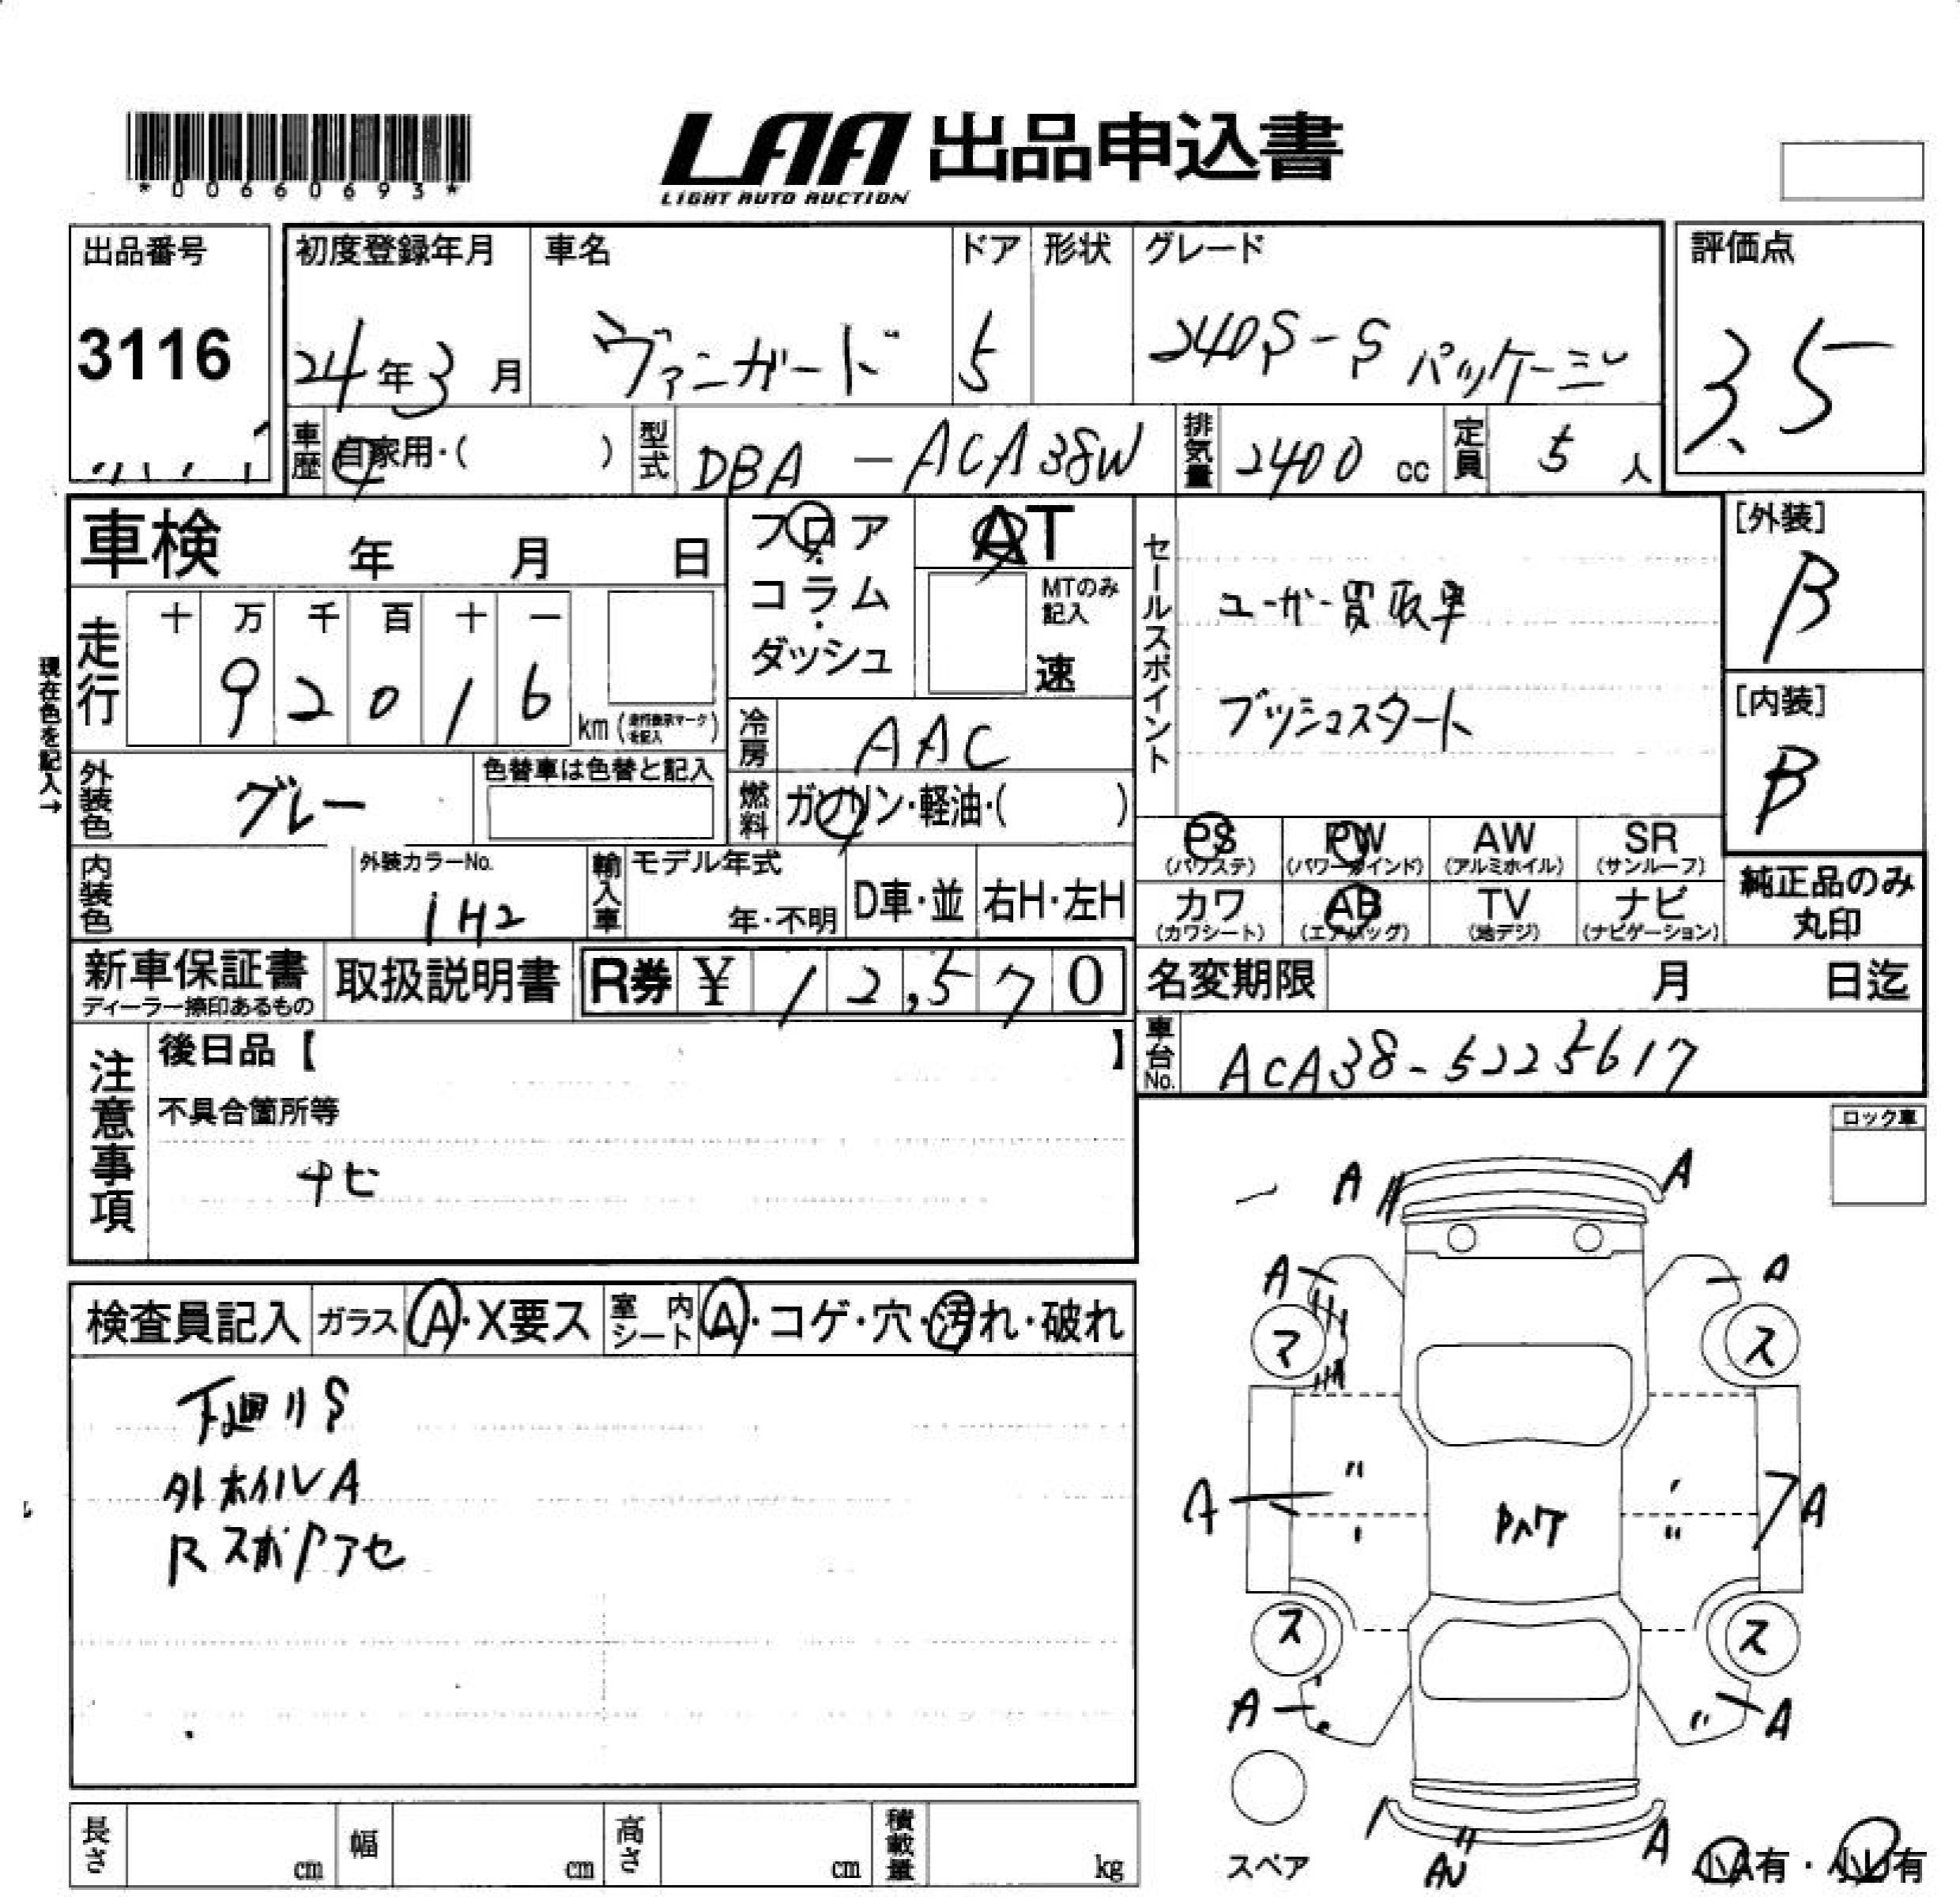 *00660693*
LAA 出品申込書
LIGHT AUTO AUCTION
出品番号
3116
初度登録年月
24年3月
車名
ヴァンガード
ドア
5
形状
グレード
240S-Sパッケージ
評価点
3.5
車歴
自家用・( )
型式
DBA-ACA38W
排気量
2400 cc
定員
5 人
車検 年 月 日
フロア
コラム
ダッシュ
AT
MTのみ記入
速
セールスポイント
ユーザー買取車
プッシュスタート
[外装]
B
[内装]
B
現在色を記入→
走行
十 万 千 百 十 一
9 2 0 1 6
km (走行表示マークを記入)
冷房
AAC
外装色
グレー
色替車は色替と記入
燃料
ガソリン・軽油・( )
PS
(パワステ)
PW
(パワーウインド)
AW
(アルミホイル)
SR
(サンルーフ)
カワ
(カワシート)
AB
(エアバッグ)
TV
(地デジ)
ナビ
(ナビゲーション)
純正品のみ
丸印
内装色
外装カラーNo.
1H2
輸入車
モデル年式
年・不明
D車・並
右H・左H
新車保証書
ディーラー捺印あるもの
取扱説明書
R券 ¥ 12,570
名変期限 月 日迄
車台No.
ACA38-5225617
注意事項
後日品【 】
不具合箇所等
ナビ
ロック車
検査員記入
ガラス
A・X要ス
室内シート
A・コゲ・穴・汚れ・破れ
下廻りS
外ホイルA
A
A
A
A
マ
ス
A
A
ス
ス
A
A
スペア
AU
A
小A有・小U有
長さ
cm
幅
cm
高さ
cm
積載量
kg